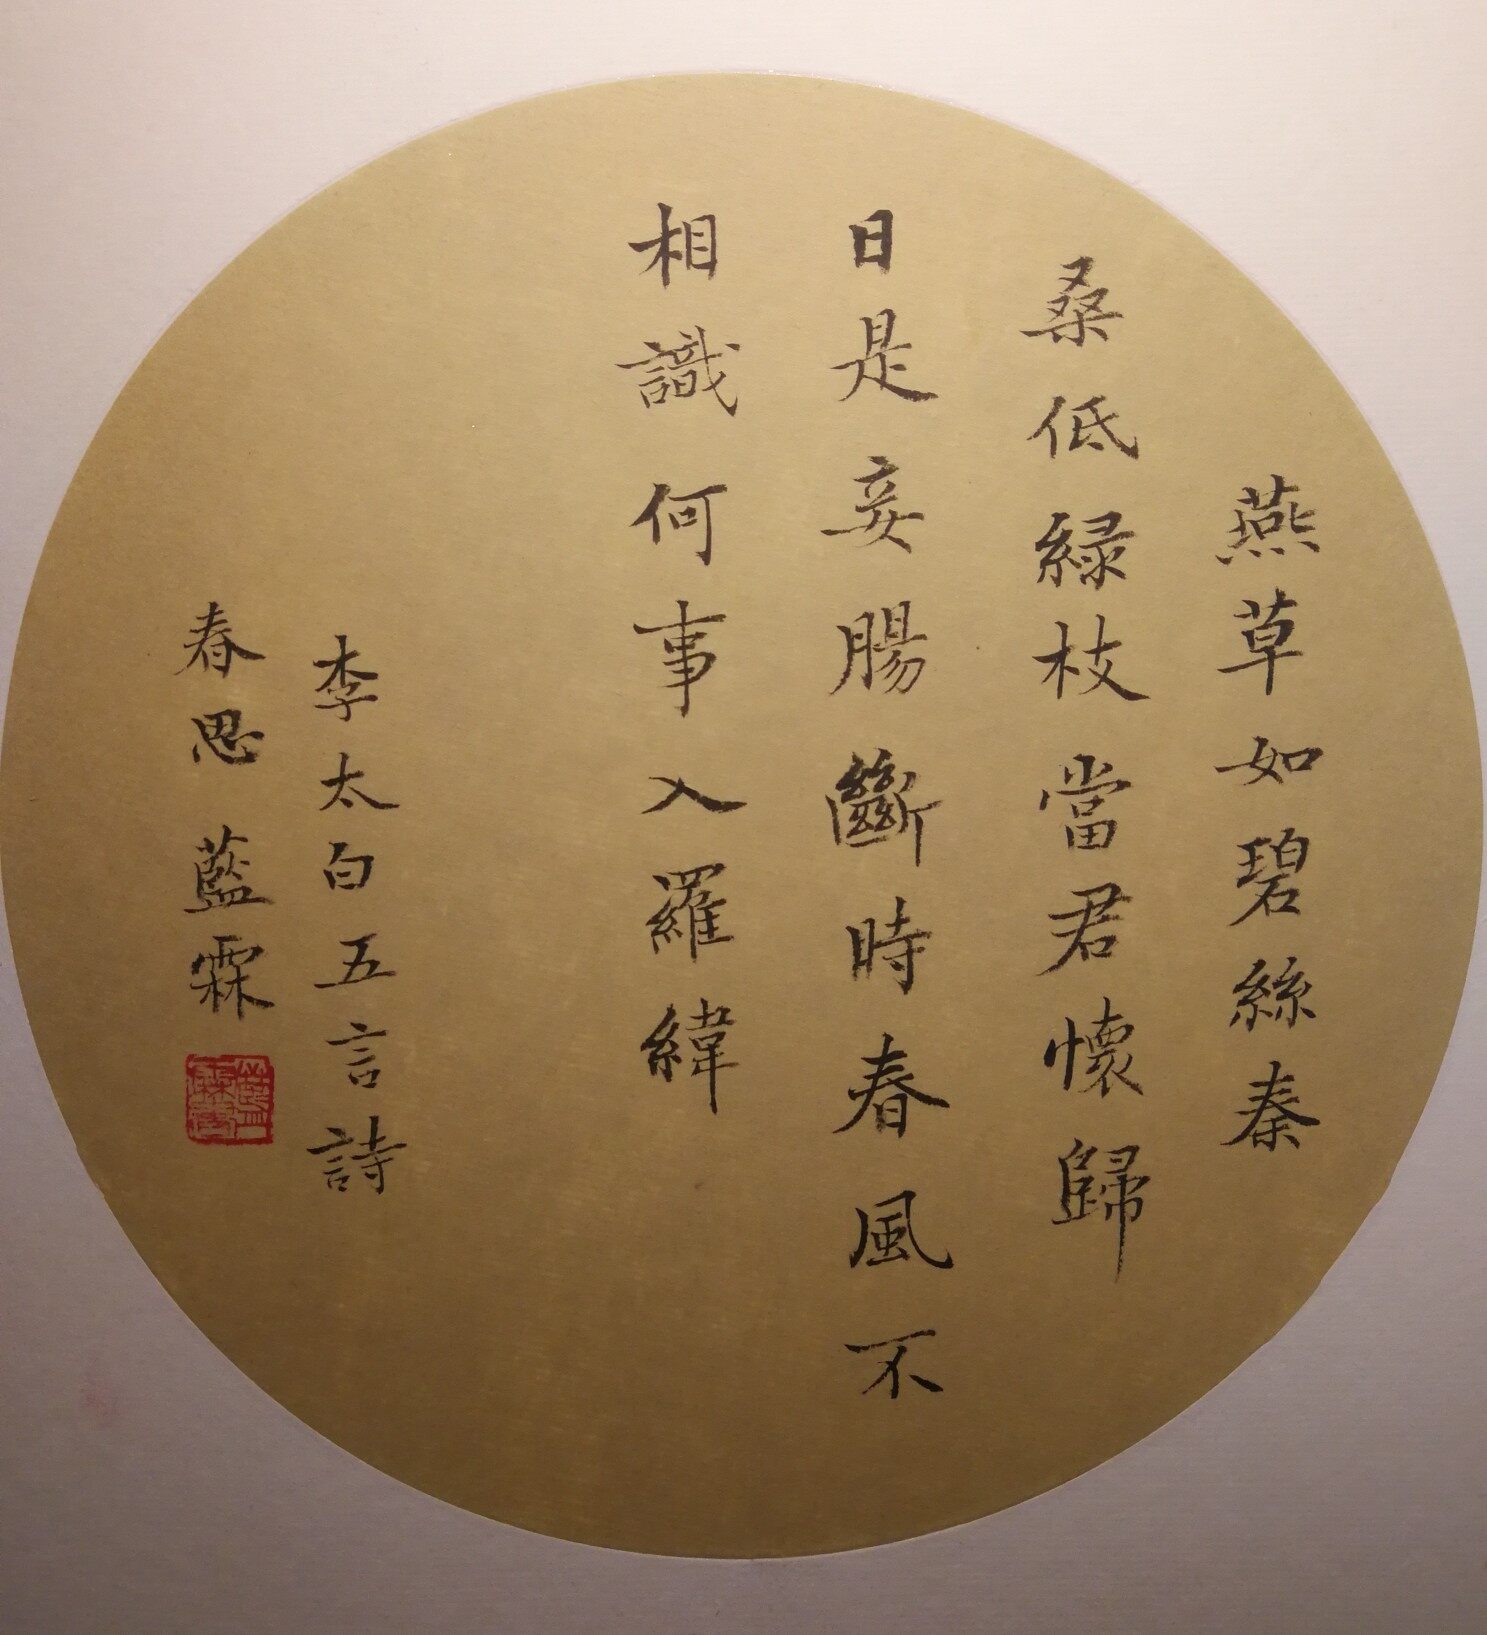 燕草如碧絲秦
桑低緑枝當君懷歸
日是妾腸斷時春風不
相識何事入羅緯
李太白五言詩
春思 藍霖